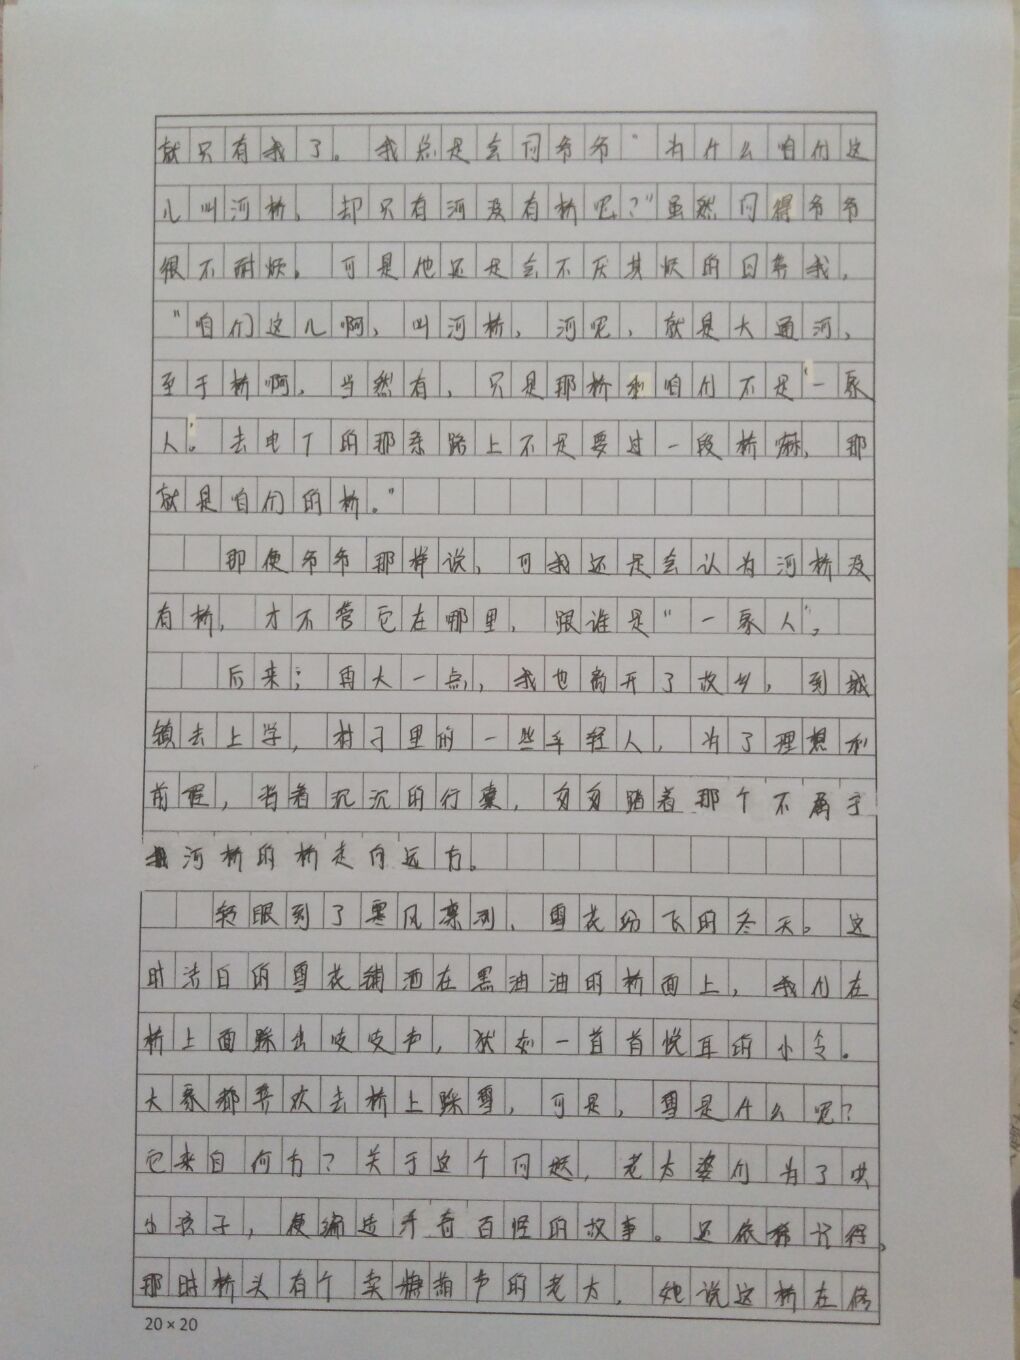 就只有我了。我总是会问爷爷“为什么咱们这
儿叫河桥，却只有河没有桥呢？”虽然问得爷爷
很不耐烦。可是他还是会不厌其烦的回答我，
“咱们这儿啊，叫河桥，河呢，就是大通河，
至于桥啊，当然有，只是那桥和咱们不是‘一家
人’。去电厂的那条路上不是要过一段桥嘛，那
就是咱们的桥。”
即使爷爷那样说，可我还是会认为河桥没
有桥，才不管它在哪里，跟谁是“一家人”。
后来；再大一点，我也离开了故乡，到城
镇去上学，村子里的一些年轻人，为了理想和
前程，背着沉沉的行囊，匆匆踏着那个不属于
河桥的桥走向远方。
转眼到了寒风凛冽、雪花纷飞的冬天。这
时洁白的雪花铺洒在黑油油的桥面上，我们在
桥上面踩出吱吱声，犹如一首首悦耳的小令。
大家都喜欢去桥上踩雪，可是，雪是什么呢？
它来自何方？关于这个问题，老太婆们为了哄
小孩子，便编造千奇百怪的故事。还依稀记得，
那时桥头有个卖糖葫芦的老太，她说这桥在修
20×20